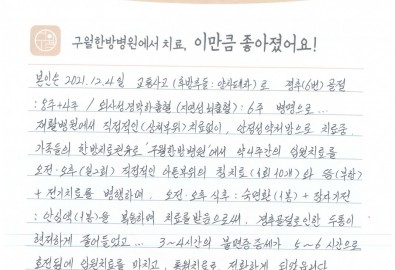 구월한방병원에서 치료, 이만큼 좋아졌어요!
본인은 2021. 12. 4일 교통사고 (후방부동 : 약차대차) 로 경추(6번) 골절
: 8주+4주 / 외상성 경막하출혈 (지연성 뇌출혈) : 6주 병명으로...
재활병원에서 직접적인 (상처부위) 치료없이, 안정성약처방으로 치료중.
가족들의 한방치료권유로 "구월한방병원"에서 약 4주간의 입원치료를
오전·오후 (일2회) 직접적인 아픈부위의 침치료 (1회 10개) 와 뜸 (복부)
+ 전기치료를 병행하며, 오전·오후 식후 : 숙면환 (1봉) + 잠자기전
: 안심액 (1봉)을 복용하며 치료를 받음으로써, 경추골절로인한 두통이
현저하게 줄어들었고... 3~4시간의 불면증증세가 6~7시간으로
호전됨에 입원치료를 마치고, 통원치료로 전환하게 되었습니다